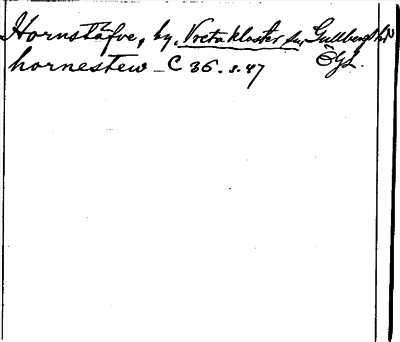 Hornstäfve, by, Vreta kloster sn, Gullbergs hd
hornestew - C 36. s. 47 Ögl.